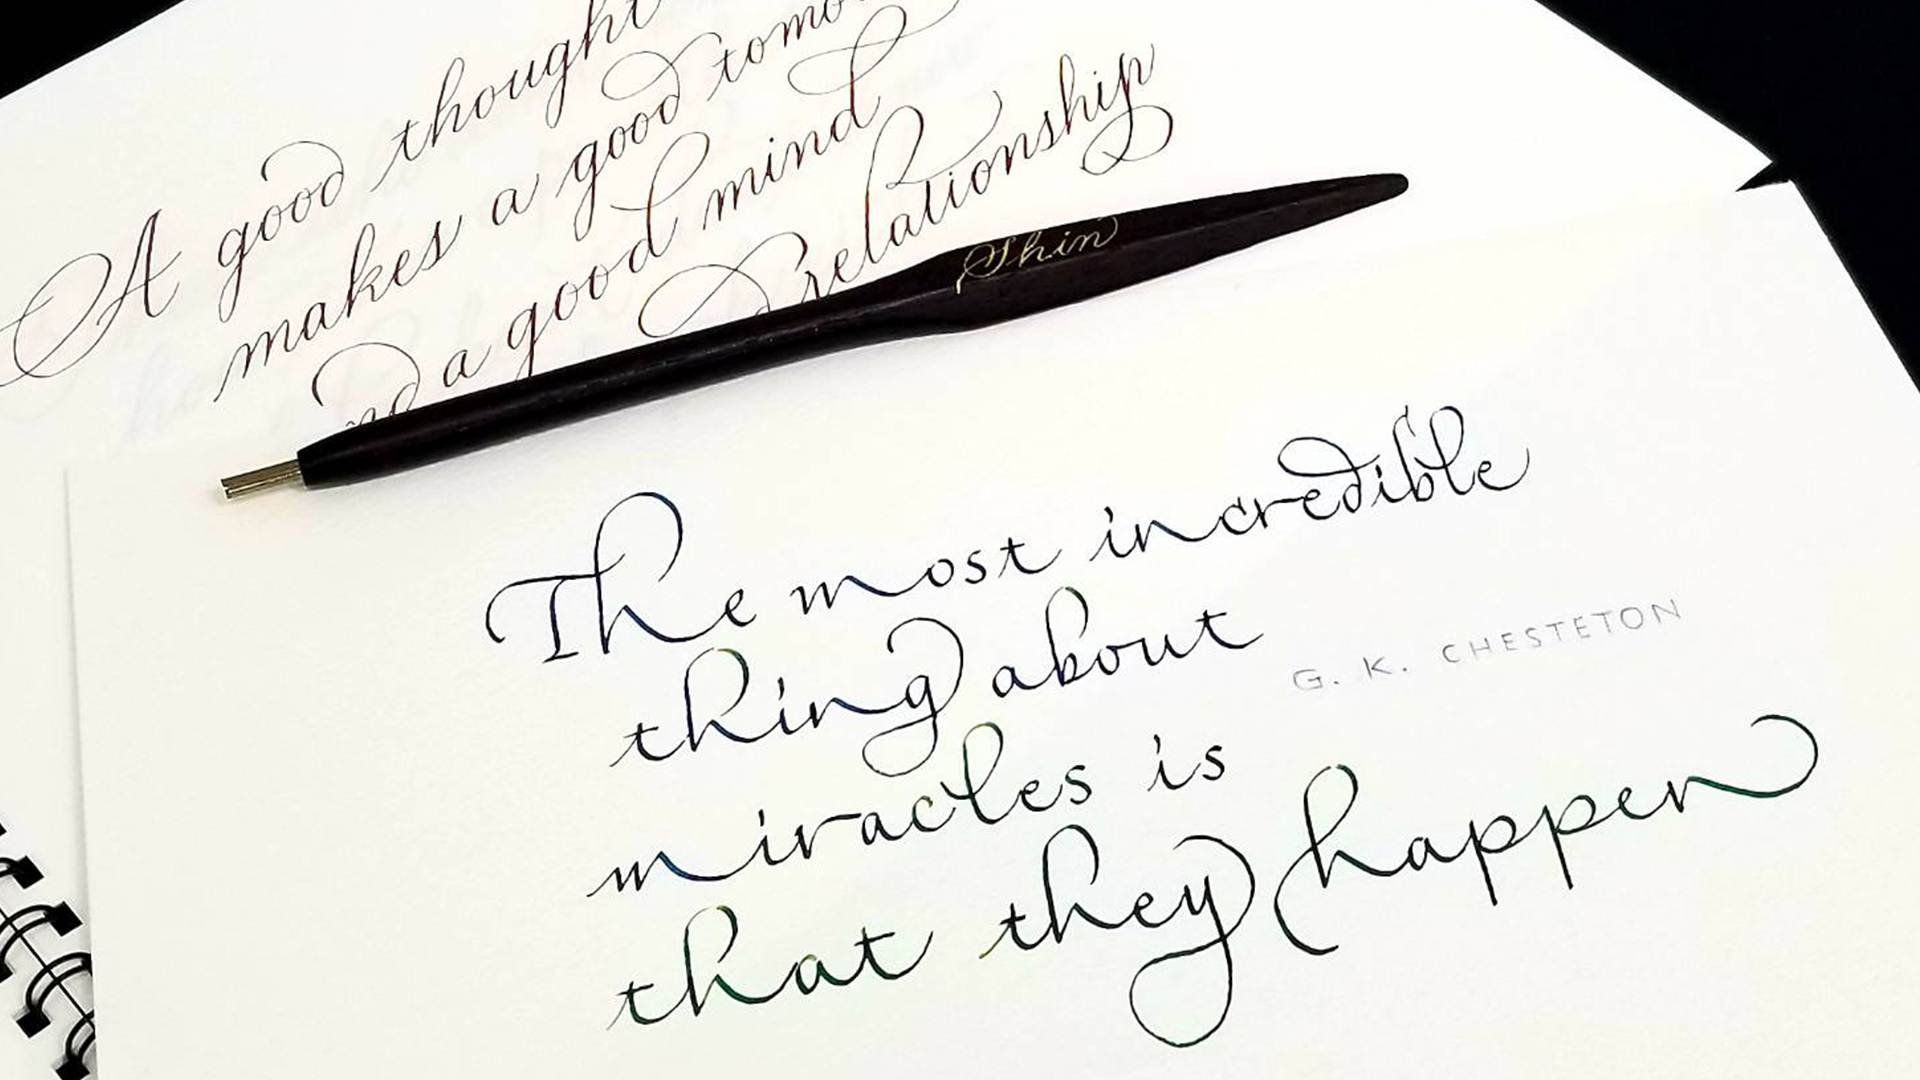 A good thought
makes a good tomo
nd a good mind
relationship
Shin
The most incredible
thing about
G. K. CHESTETON
miracles is
that they happen